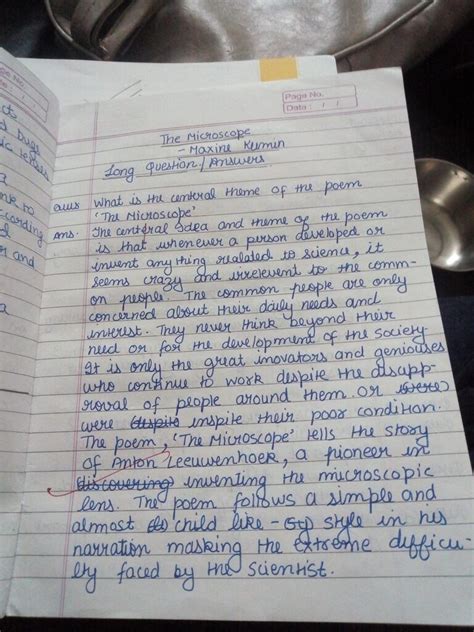 Page No.
Date: / /
The Microscope
- Maxine Kumin
Long Question/Answers
Ques What is the central theme of the poem
'The Microscope'
Ans. The central idea and theme of the poem
is that whenever a person developed or
invent any thing realated to science, it
seems crazy and irrelevent to the comm-
on people. The common people are only
concerned about their daily needs and
interst. They never think beyond their
need or for the development of the society.
It is only the great inovators and geniouses
who continue to work despite the disapp-
roval of people around them. or
were despite inspite their poor condition.
The poem, 'The Microscope' tells the story
of Anton Leeuwenhoek, a pioneer in
discovering inventing the microscopic
lens. The poem follows a simple and
almost child like - style in his
narration masking the extreme difficu-
lty faced by the scientist.